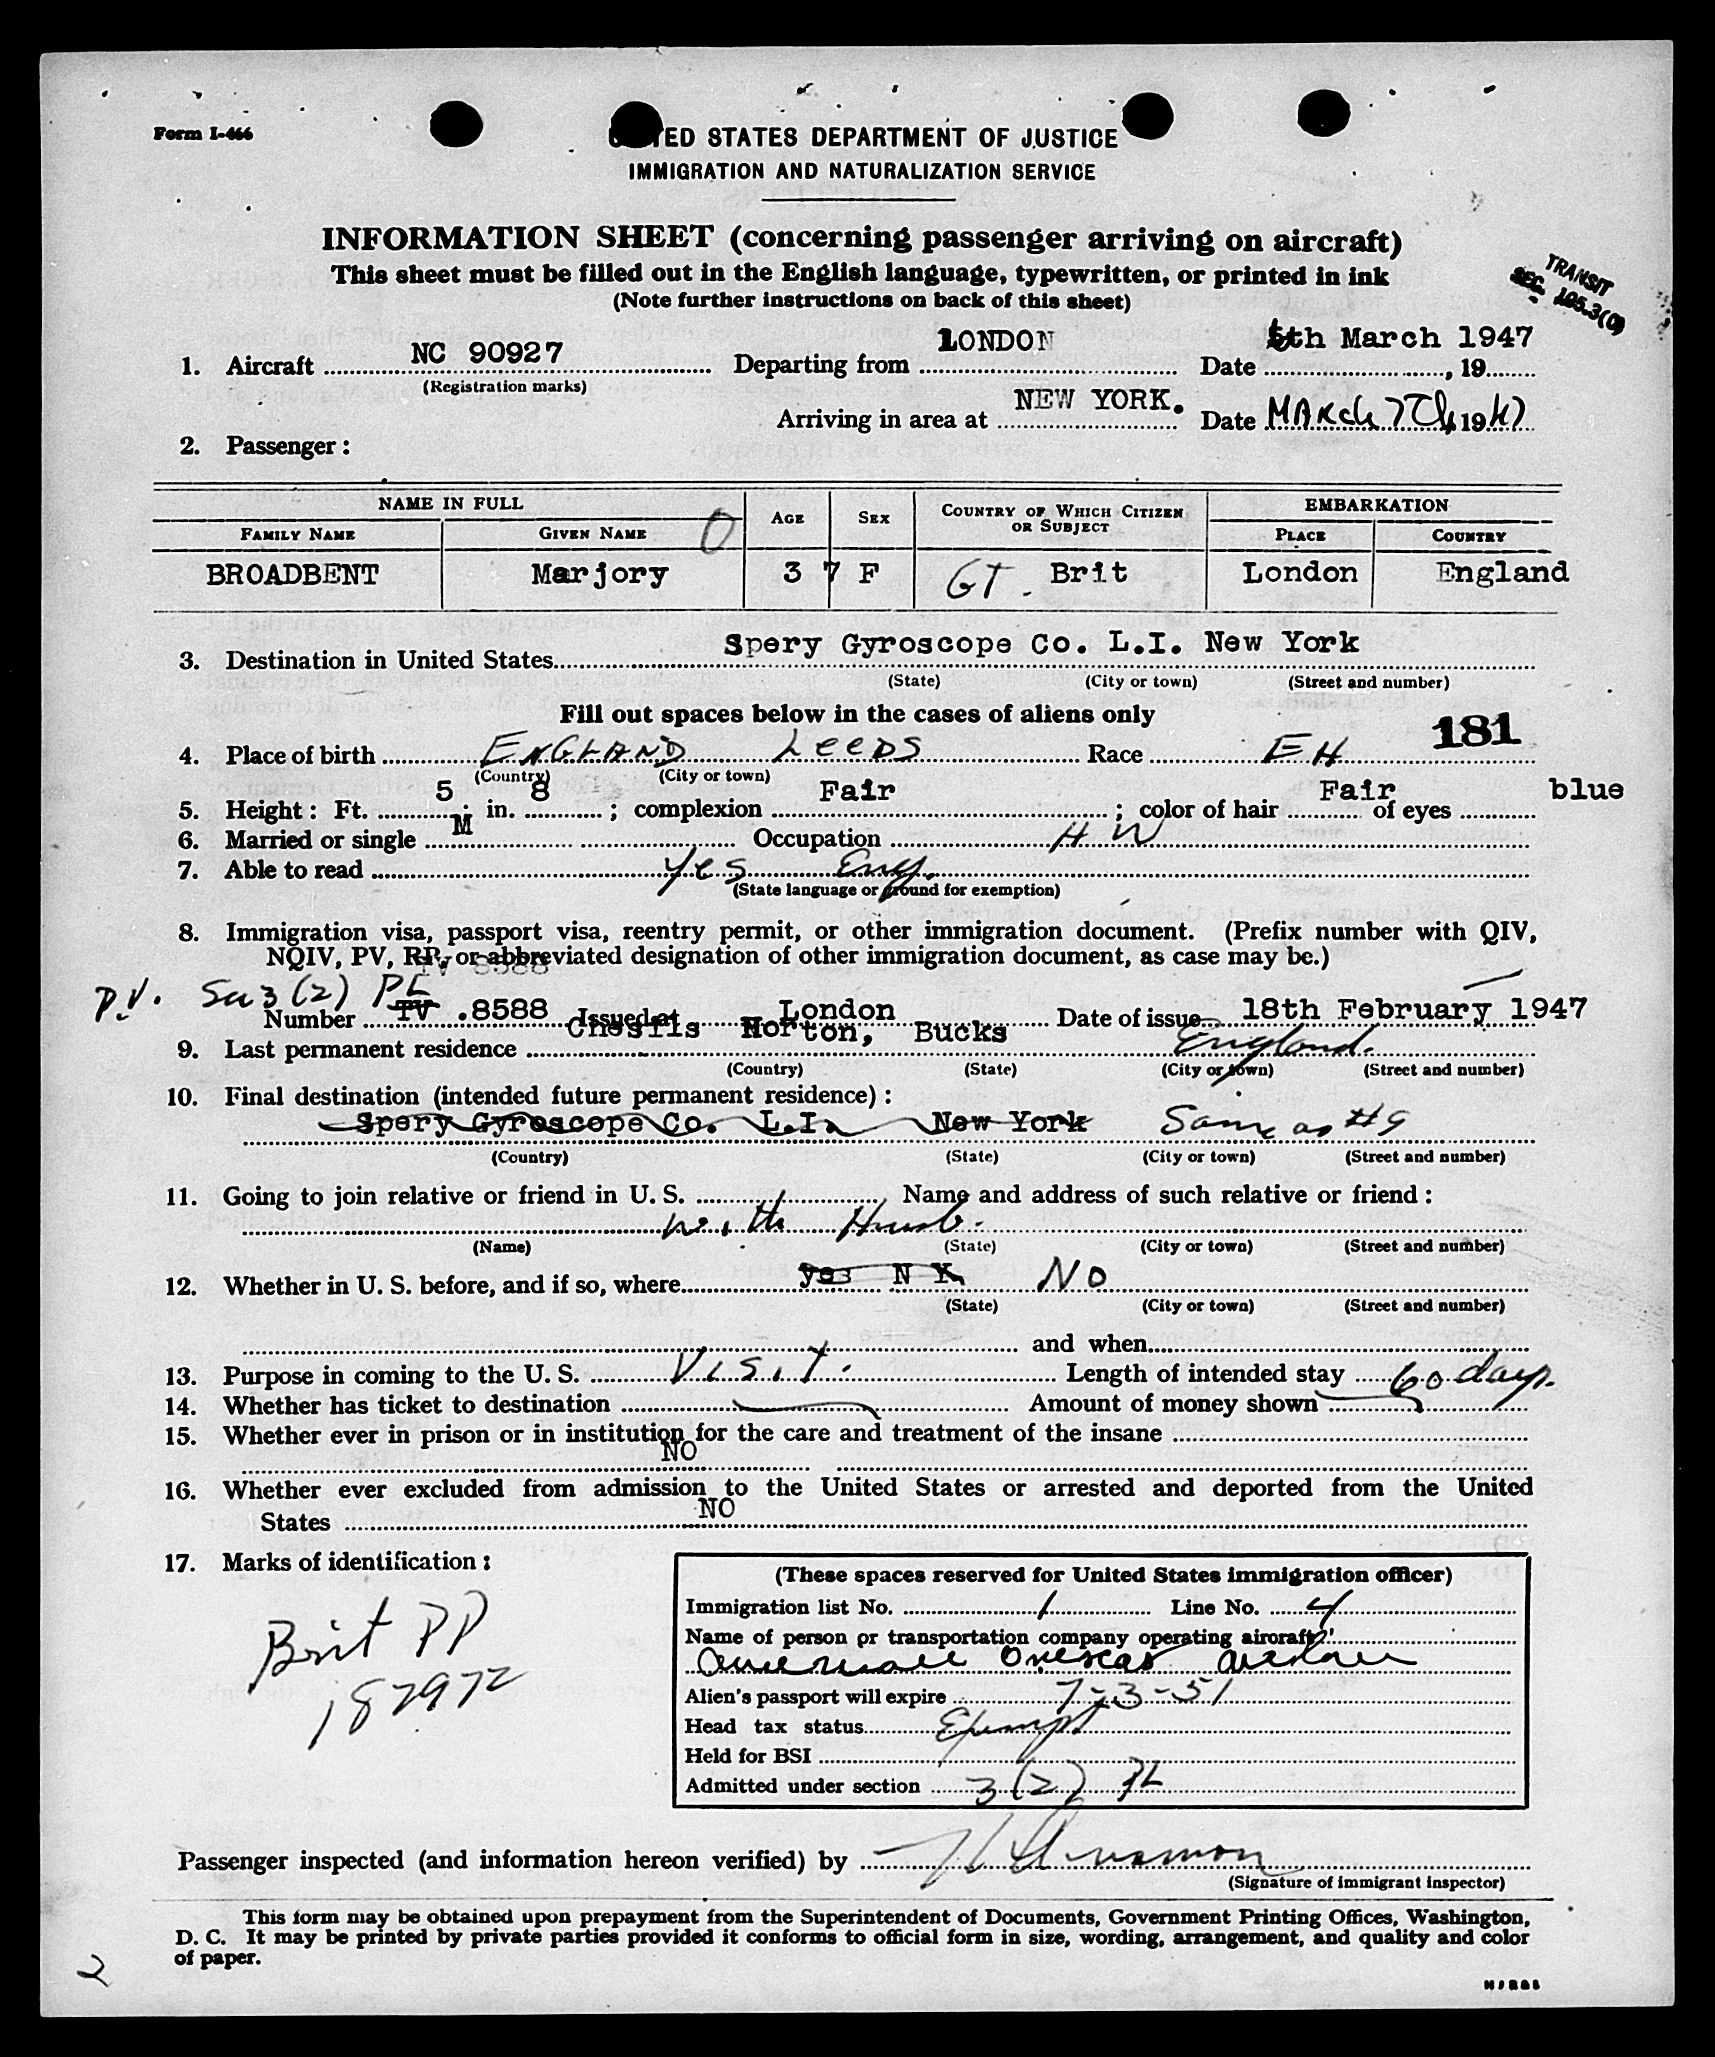 Form I-466
UNITED STATES DEPARTMENT OF JUSTICE
IMMIGRATION AND NATURALIZATION SERVICE
INFORMATION SHEET (concerning passenger arriving on aircraft)
This sheet must be filled out in the English language, typewritten, or printed in ink
(Note further instructions on back of this sheet)
TRANSIT
SEC. 105.3(c)
1. Aircraft NC 90927 Departing from LONDON Date 6th March 1947, 19
(Registration marks)
Arriving in area at NEW YORK. Date MARch 7Th, 1947
2. Passenger:
NAME IN FULL AGE SEX COUNTRY OF WHICH CITIZEN OR SUBJECT EMBARKATION
FAMILY NAME GIVEN NAME PLACE COUNTRY
BROADBENT Marjory 37 F GT. Brit London England
3. Destination in United States Spery Gyroscope Co. L.I. New York
(State) (City or town) (Street and number)
Fill out spaces below in the cases of aliens only
181
4. Place of birth ENGLAND LEEDS Race EH
(Country) (City or town)
5. Height: Ft. 5; in. 8; complexion Fair; color of hair Fair of eyes blue
6. Married or single M Occupation HW
7. Able to read yes Eng.
(State language or ground for exemption)
8. Immigration visa, passport visa, reentry permit, or other immigration document. (Prefix number with QIV,
NQIV, PV, RP, or abbreviated designation of other immigration document, as case may be.)
TV 8588
P.V. 3(2) PL
Number TV .8588 Issued at London Date of issue 18th February 1947
9. Last permanent residence Chesils Horton, Bucks England.
(Country) (State) (City or town) (Street and number)
10. Final destination (intended future permanent residence):
Spery Gyroscope Co. L.I. New York Same as #9
(Country) (State) (City or town) (Street and number)
11. Going to join relative or friend in U. S. Name and address of such relative or friend:
with Husb.
(Name) (State) (City or town) (Street and number)
12. Whether in U. S. before, and if so, where yes N Y. NO
(State) (City or town) (Street and number)
and when
13. Purpose in coming to the U. S. Visit. Length of intended stay 60 days.
14. Whether has ticket to destination Amount of money shown
15. Whether ever in prison or in institution for the care and treatment of the insane
NO
16. Whether ever excluded from admission to the United States or arrested and deported from the United
States NO
17. Marks of identification:
Brit PP
187972
(These spaces reserved for United States immigration officer)
Immigration list No. 1 Line No. 4
Name of person or transportation company operating aircraft
American Overseas Airlines
Alien's passport will expire 7-3-51
Head tax status Exempt
Held for BSI
Admitted under section 3(2) PL
Passenger inspected (and information hereon verified) by
(Signature of immigrant inspector)
This form may be obtained upon prepayment from the Superintendent of Documents, Government Printing Offices, Washington,
D. C. It may be printed by private parties provided it conforms to official form in size, wording, arrangement, and quality and color
of paper.
2